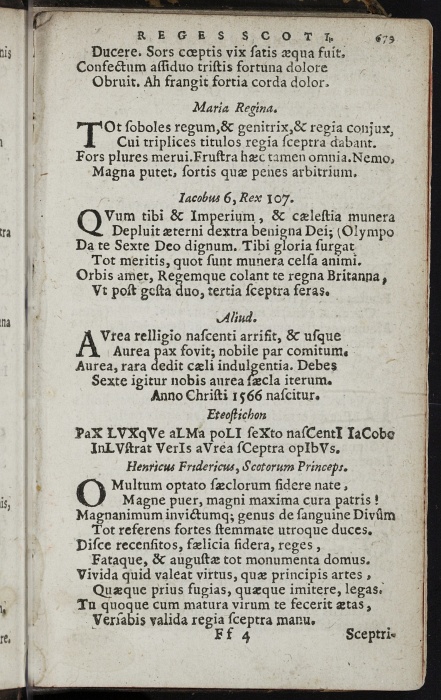 REGES SCOTI. 679
Ducere. Sors cœptis vix ſatis æqua fuit.
Confectum aſſiduo triſtis fortuna dolore
Obruit. Ah frangit fortia corda dolor.
Maria Regina.
TOt ſoboles regum,& genitrix,& regia conjux,
Cui triplices titulos regia ſceptra dabant.
Fors plures merui.Fruſtra hæc tamen omnia.Nemo,
Magna putet, fortis quæ penes arbitrium.
Iacobus 6, Rex 107.
QVum tibi & Imperium, & cæleſtia munera
Depluit æterni dextra benigna Dei; (Olympo
Da te Sexte Deo dignum. Tibi gloria ſurgat
Tot meritis, quot ſunt munera celſa animi.
Orbis amet, Regemque colant te regna Britanna,
Vt poſt geſta duo, tertia ſceptra feras.
Aliud.
AVrea relligio naſcenti arriſit, & uſque
Aurea pax fovit; nobile par comitum.
Aurea, rara dedit cæli indulgentia. Debes
Sexte igitur nobis aurea ſæcla iterum.
Anno Chriſti 1566 naſcitur.
Eteoſtichon
PaX LVXqVe aLMa poLI ſeXto naſCentI IaCobo
InLVſtrat VerIs aVrea ſCeptra opIbVs.
Henricus Fridericus, Scotorum Princeps.
O Multum optato ſæclorum ſidere nate,
Magne puer, magni maxima cura patris!
Magnanimum invictumq; genus de ſanguine Divûm
Tot referens fortes ſtemmate utroque duces.
Diſce recenſitos, fælicia ſidera, reges,
Fataque, & auguſtæ tot monumenta domus.
Vivida quid valeat virtus, quæ principis artes,
Quæque prius fugias, quæque imitere, legas.
Tu quoque cum matura virum te fecerit ætas,
Verſabis valida regia ſceptra manu.
Ff 4 Sceptri-